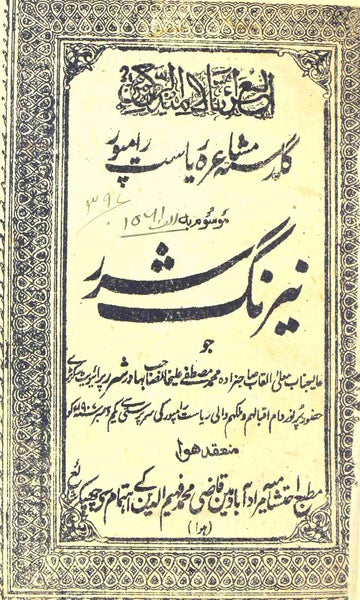 گلدستہ مشاعرۂ ریاست رامپور
۳۹۷
موسوم بہ
نیرنگ شرر
جو
عالیجناب معلی القاب صاحبزادہ محمد مصطفی علیخان صاحب بہادر شرر پرائیوٹ سکرٹری
حضور پرنور دام اقبالہم و ملکہم والی ریاست رامپور کی سرپرستی یکم دسمبر ۱۹۰۷ء کو
منعقد ہوا
مطبع احتشامیہ مرادآباد مین قاضی محمد فہیم الدین کے اہتمام سے چھپکر شائع
(ہوا)